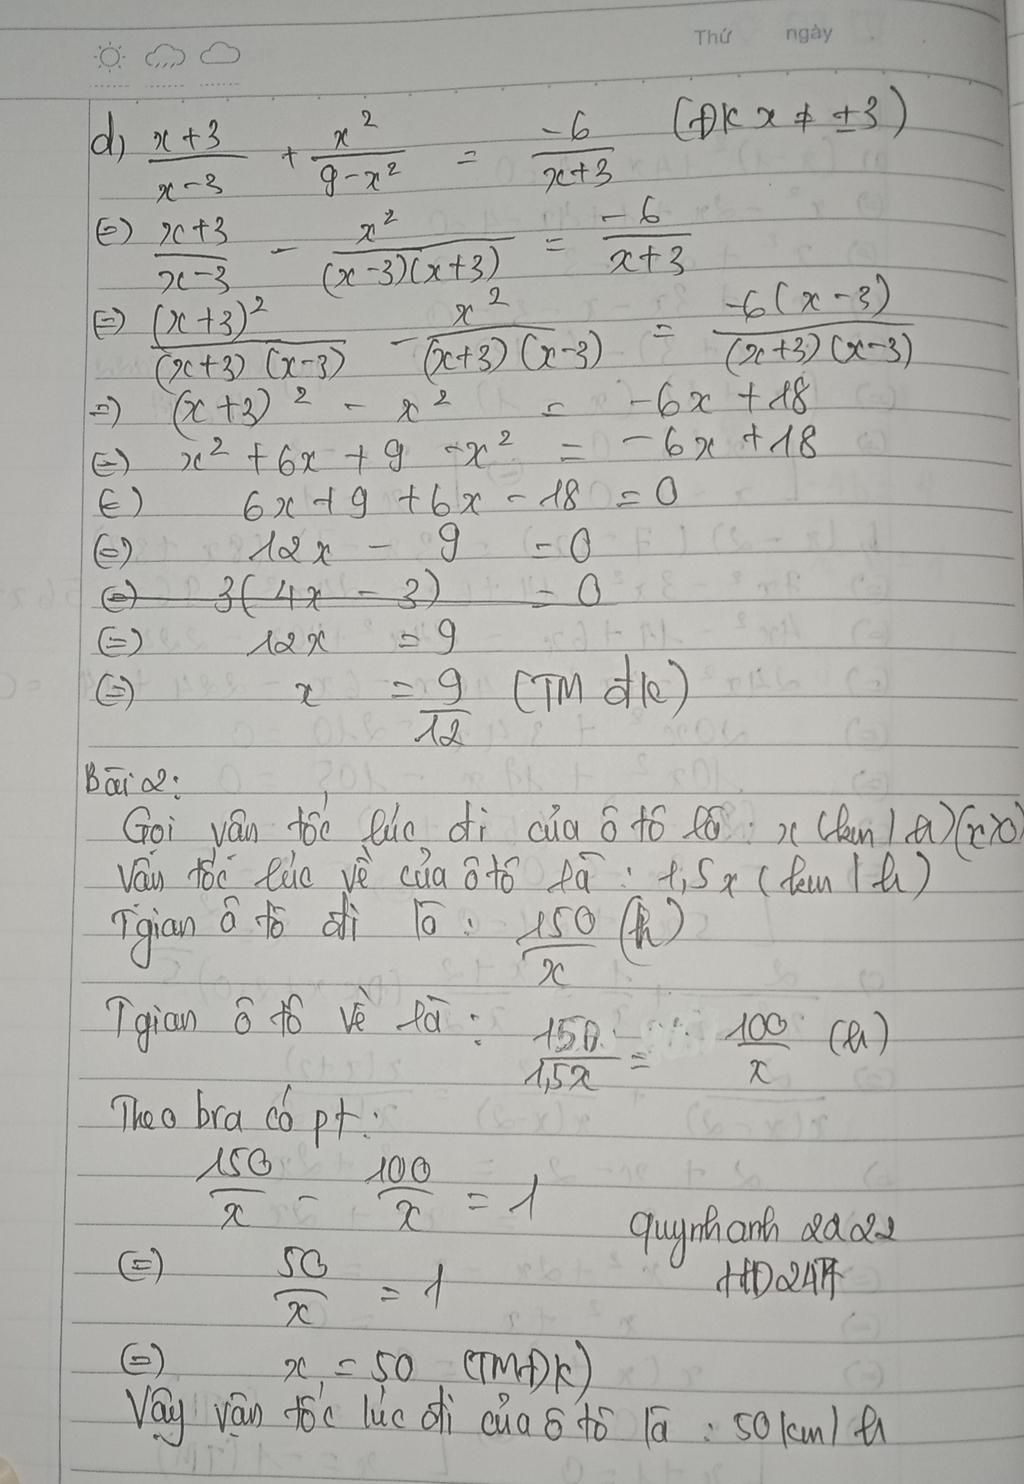 Thứ ngày
d) \frac{x+3}{x-3} + \frac{x^2}{9-x^2} = \frac{-6}{x+3} (ĐK x ≠ ±3)
(=) \frac{x+3}{x-3} - \frac{x^2}{(x-3)(x+3)} = \frac{-6}{x+3}
(=) \frac{(x+3)^2}{(x+3)(x-3)} - \frac{x^2}{(x+3)(x-3)} = \frac{-6(x-3)}{(x+3)(x-3)}
=) (x+3)^2 - x^2 = -6x + 18
(=) x^2 + 6x + 9 - x^2 = -6x + 18
(=) 6x + 9 + 6x - 18 = 0
(=) 12x - 9 = 0
(=) 3(4x - 3) = 0
(=) 12x = 9
(=) x = \frac{9}{12} (TM đk)
Bài 2:
Gọi vận tốc lúc đi của ô tô là: x (km/h)(x>0)
Vận tốc lúc về của ô tô là: 1,5x (km/h)
Tgian ô tô đi là: \frac{150}{x} (h)
Tgian ô tô về là: \frac{150}{1,5x} = \frac{100}{x} (h)
Theo bra có pt:
\frac{150}{x} - \frac{100}{x} = 1
quynhanh 2d22
(=) \frac{50}{x} = 1
(=) x = 50 (TMĐK)
Vậy vận tốc lúc đi của ô tô là: 50km/h